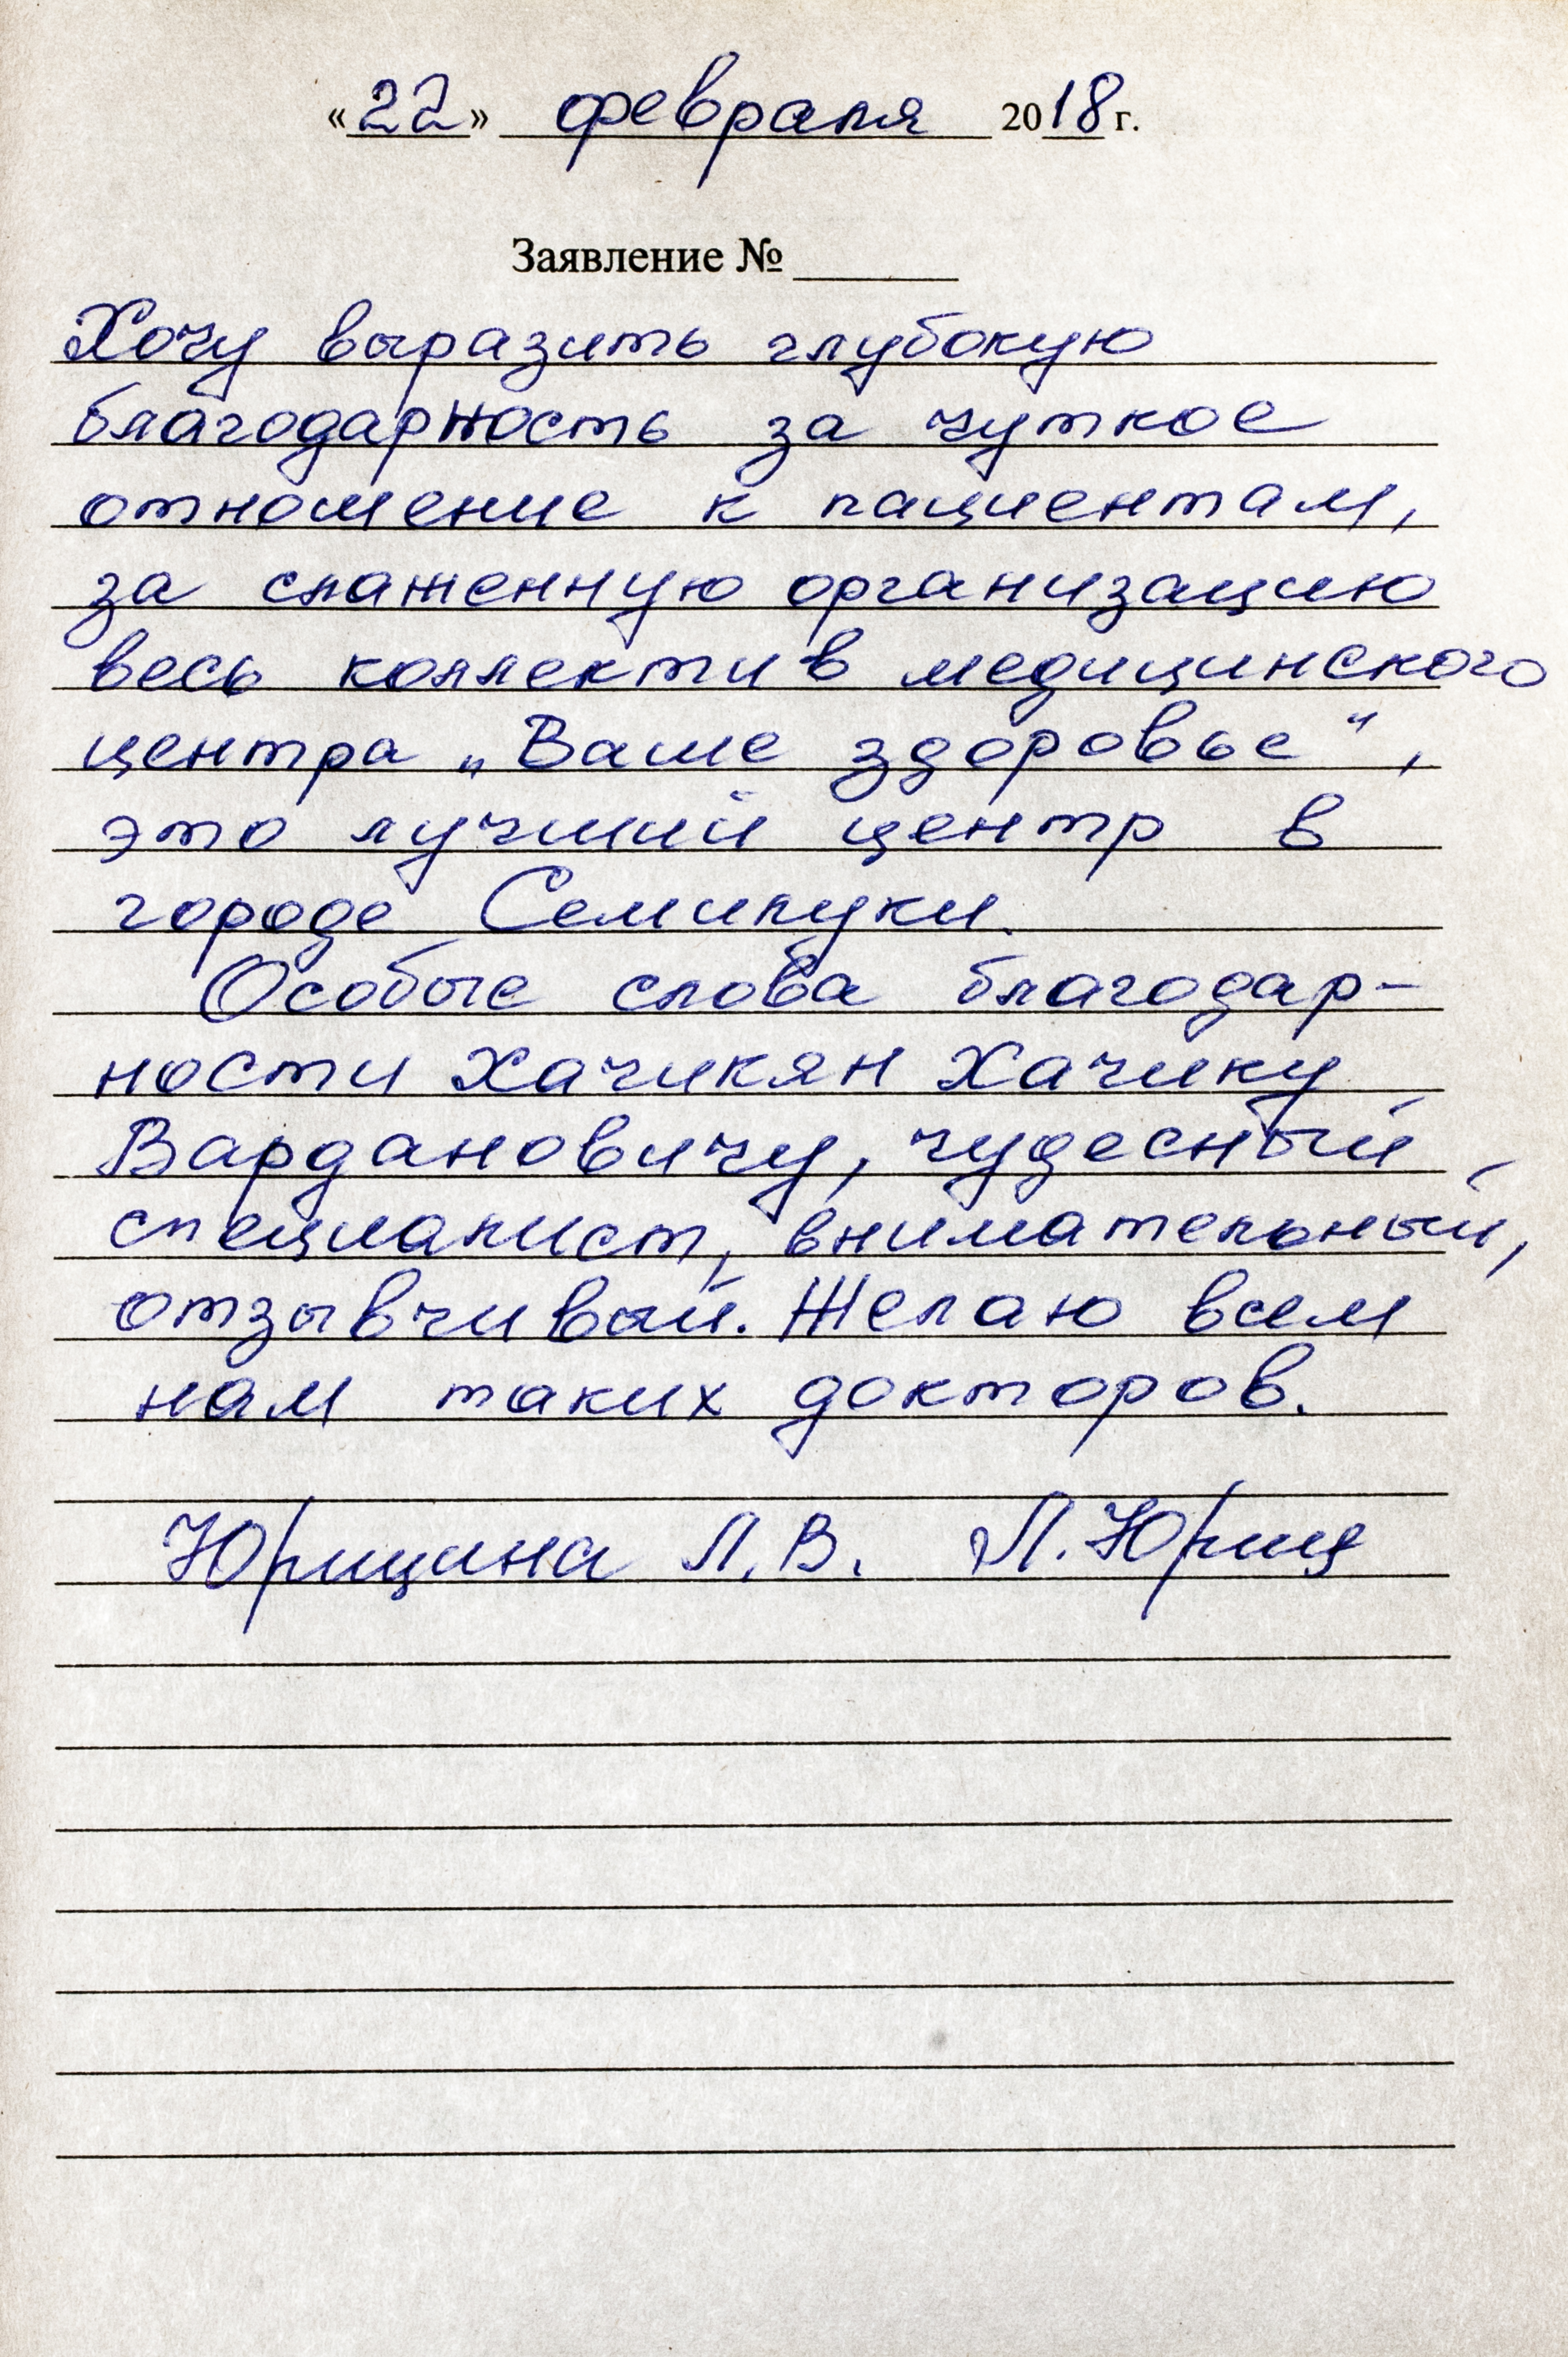 «22» февраля 2018 г.
Заявление № ______
Хочу выразить глубокую
благодарность за чуткое
отношение к пациентам,
за слаженную организацию
весь коллектив медицинского
центра „Ваше здоровье“,
это лучший центр в
городе Семилуки.
Особые слова благодар-
ности Хачикян Хачику
Вардановичу, чудесный
специалист, внимательный,
отзывчивый. Желаю всем
нам таких докторов.
Юрицина Л.В. Л.Юриц